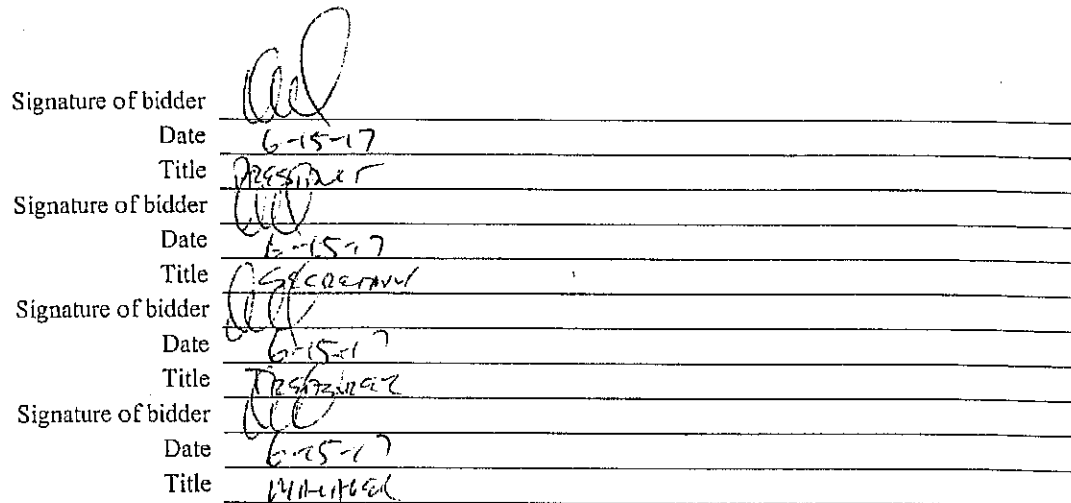 Signature of bidder
Date 6-15-17
Title PRESIDENT
Signature of bidder
Date 6-15-17
Title SECRETARY
Signature of bidder
Date 6-15-17
Title TREASURER
Signature of bidder
Date 6-15-17
Title MANAGER